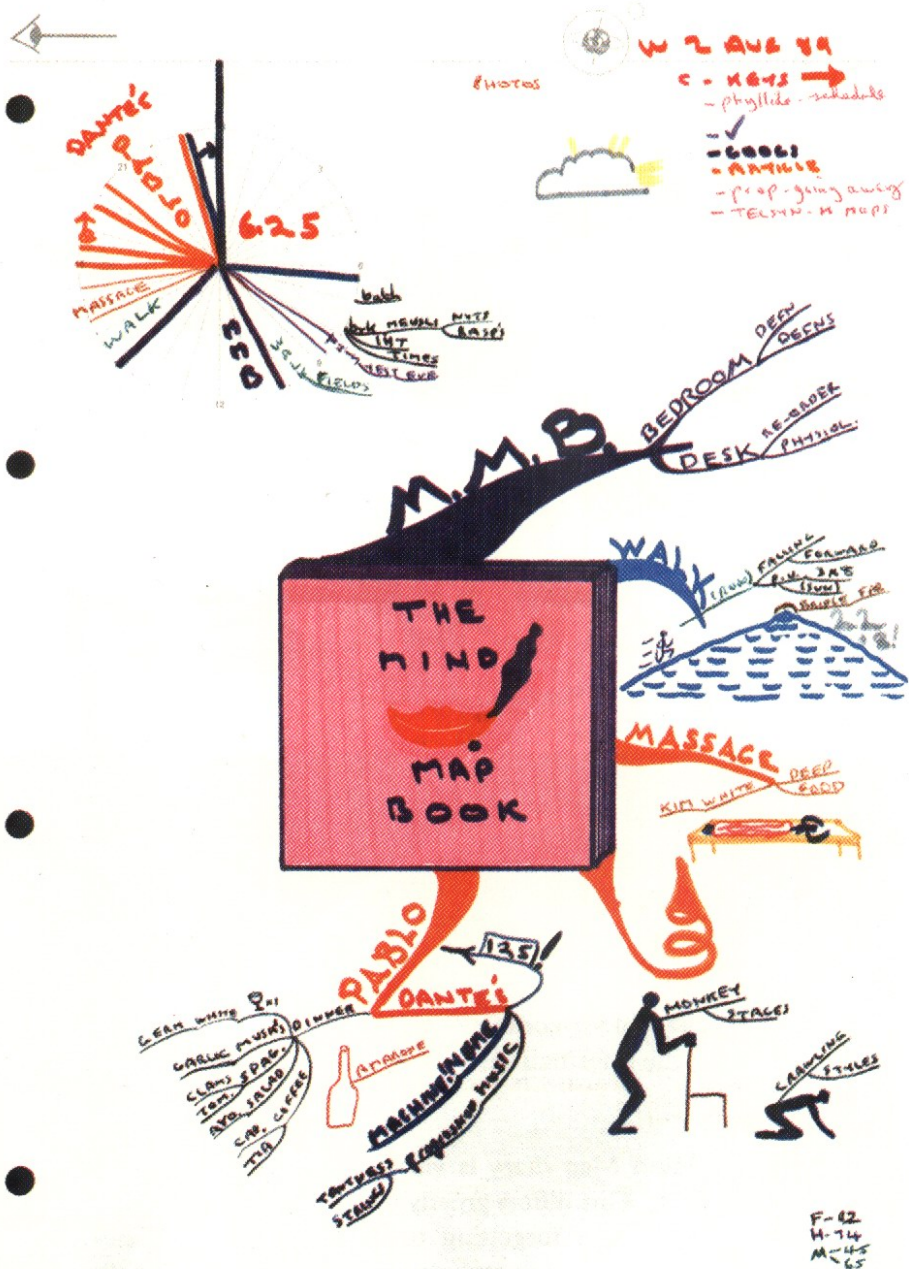 W 2 AUG 89
PHOTOS
C - KEYS
- phyllida - schedule
- GOOGS
- prop - going away
- TELSYN - M MAPS
DANTE'S
PABLO
21
3
6.25
6
MASSAGE
WALK
12
9
bath
brk
MEUSLI
NUTS
RASP'S
IHT
TIMES
YEST EVE
FIELDS
M.M.B.
BEDROOM
DEFN
DEFNS
DESK
RE-ORDER
PHYSIOL.
WALK
(RUN)
FALLING
FORWARD
(SUN)
THE
MIND
MAP
BOOK
MASSAGE
KIM WHITE
DEEP
PABLO
DANTE'S
125!
DINNER
GERM WHITE
x1
GARLIC MUSH'S
CLAMS SPAG.
TOM.
AVO. SALAD
CAP. COFFEE
TIA
AMARONE
MACHINE
MEME
PROGRESSION MUSIC
STRINGS
MONKEY
STAGES
CRAWLING
STYLES
F - 82
H - 74
M - 45
65